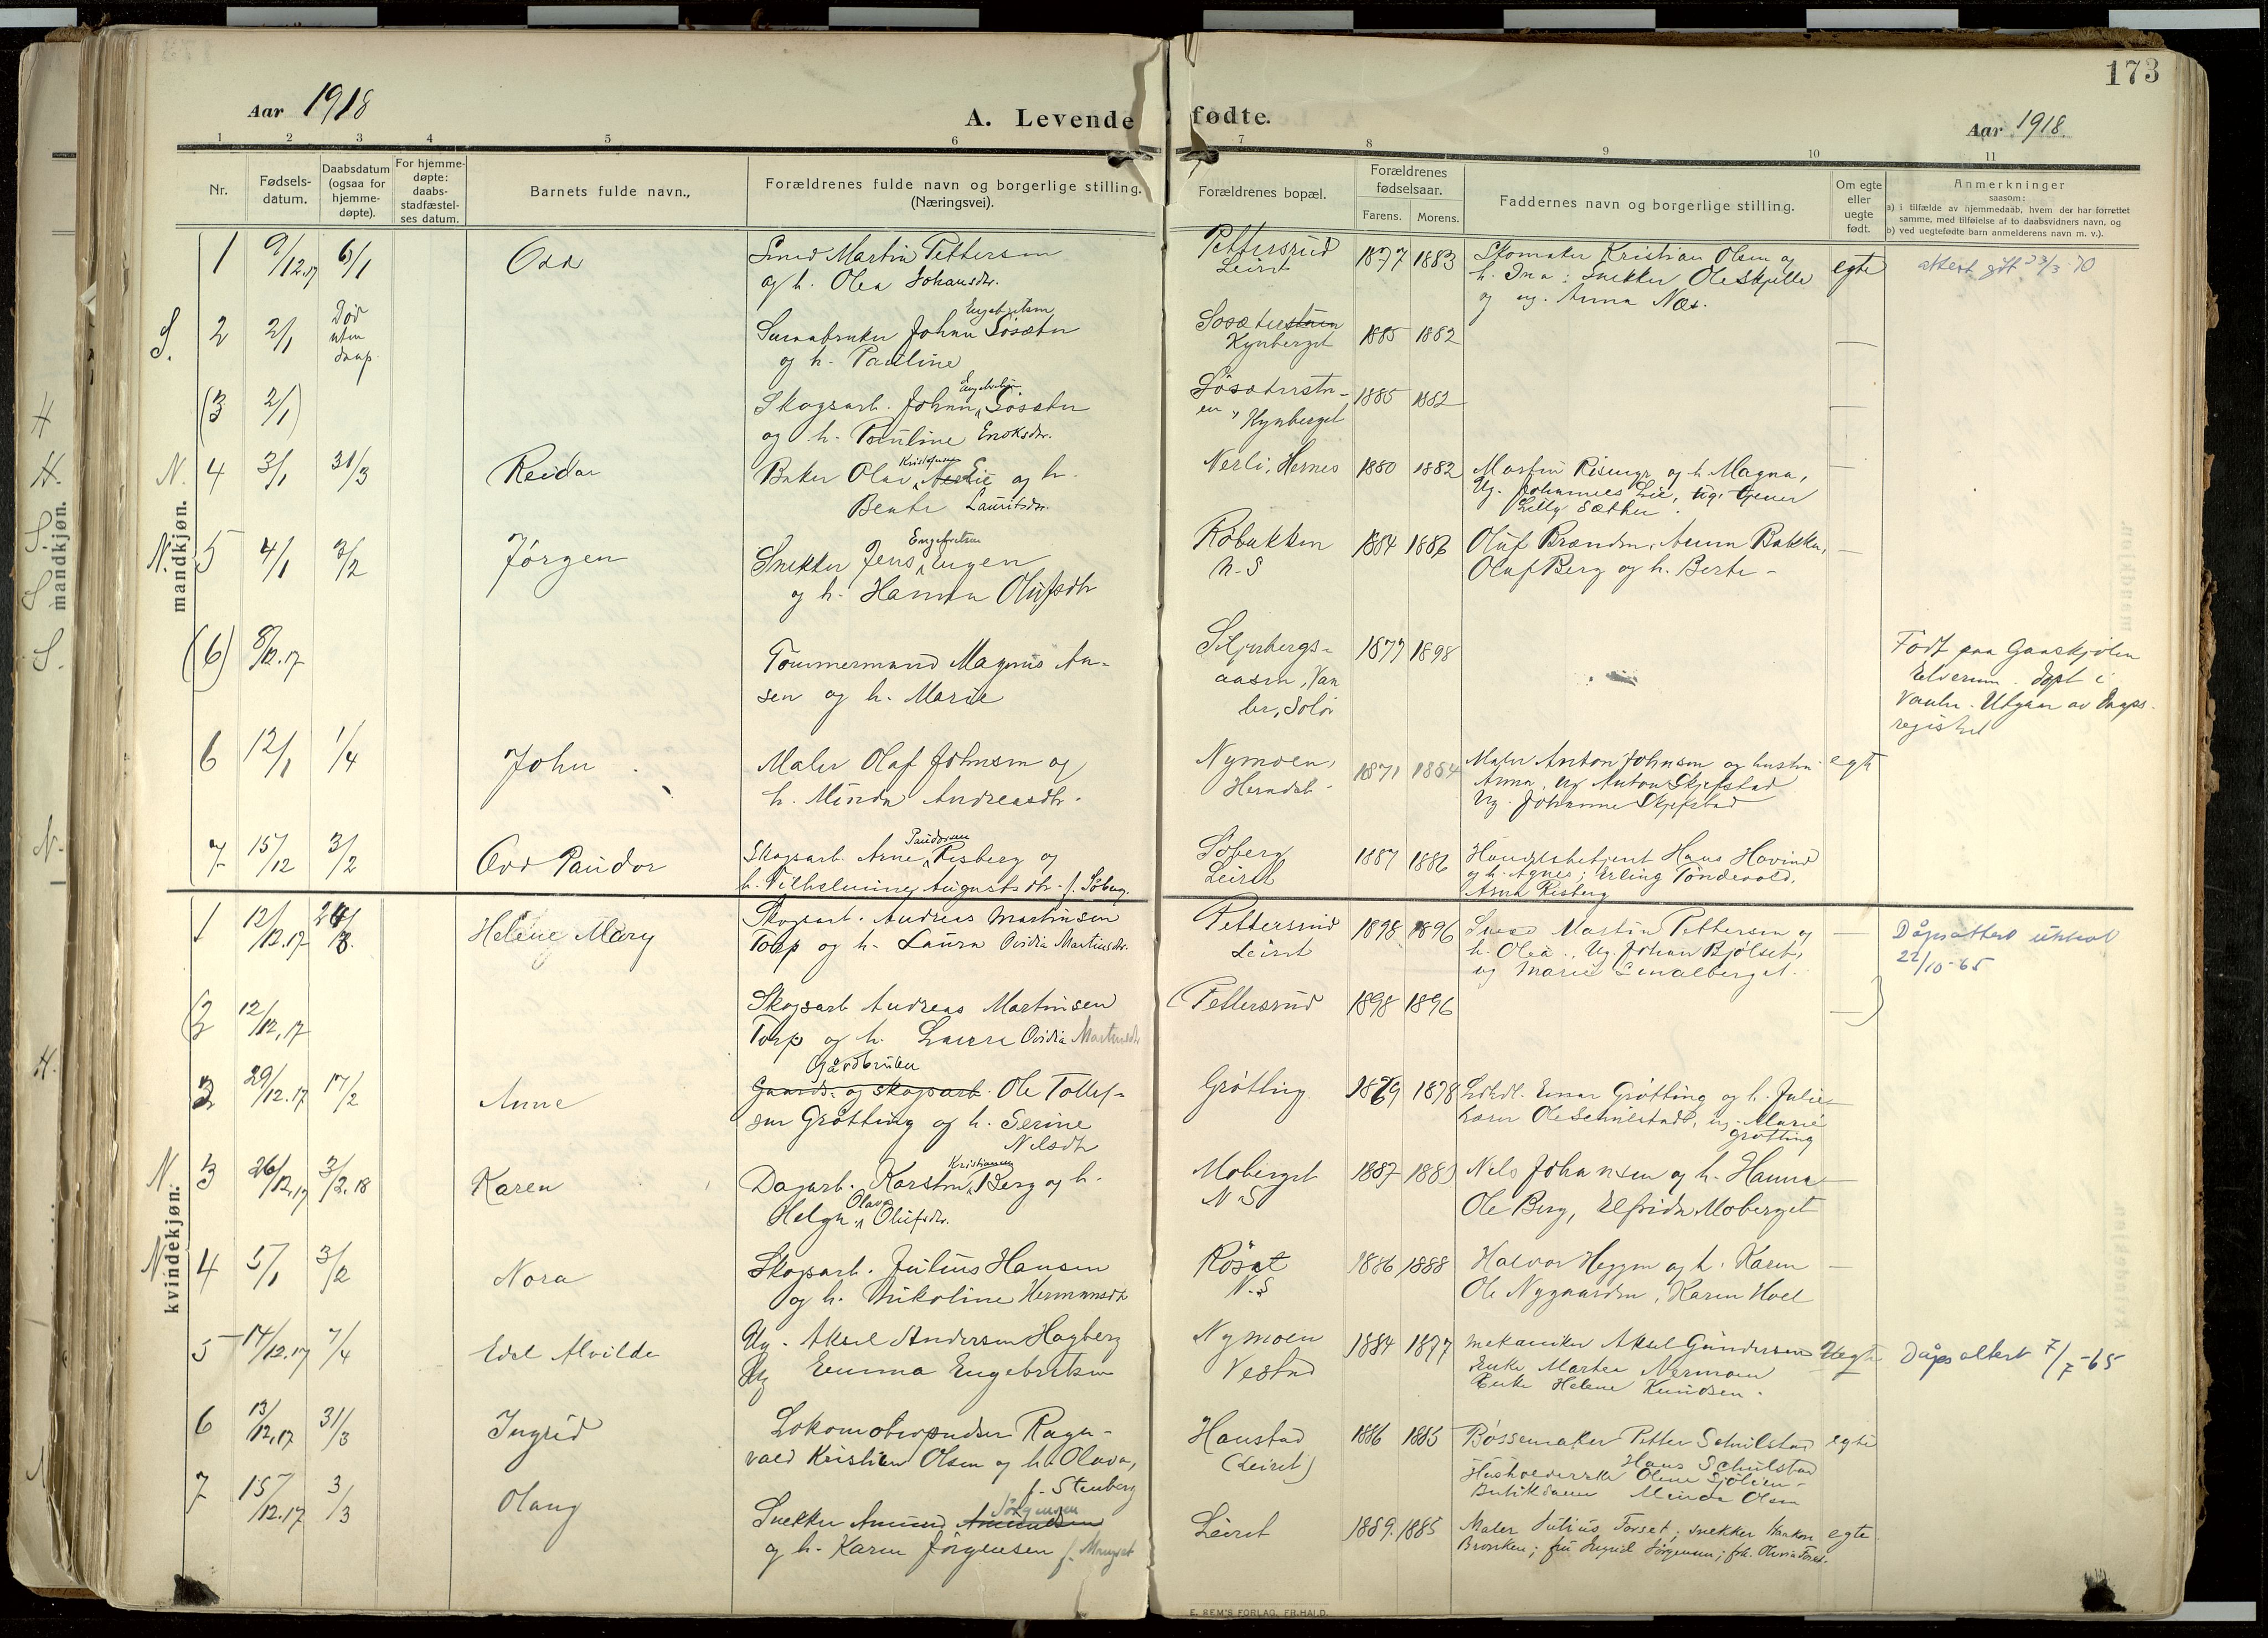 173
Aar 1918
A. Levende fødte.
Aar 1918.
1 2 3 4 5 6 7 8 9 10 11
Nr.
Fødsels-
datum.
Daabsdatum
(ogsaa for
hjemme-
døpte).
For hjemme-
døpte:
daabs-
stadfæstel-
ses datum.
Barnets fulde navn.,
Forældrenes fulde navn og borgerlige stilling.
(Næringsvei).
Forældrenes bopæl.
Forældrenes
fødselsaar.
Farens. Morens.
Faddernes navn og borgerlige stilling.
Om egte
eller
uegte
født.
Anmerkninger
saasom:
a) i tilfælde av hjemmedaab, hvem der har forrettet
samme, med tilføielse af to daabsvidners navn, og
b) ved uegtefødte barn anmelderens navn m. v.).
mandkjøn.
1 9/12.17 6/1 Odd
Smed Martin Pettersen
og h. Olea Johansdtr.
Pettersrud
Leiret
1877 1883
Skomaker Kristian Olsen og
h. Ina; Snekker Ole Skjelle
og ug. Anna Næs.
egte
attest gitt 23/3 70
S. 2 2/1 Død
uten
daap.
Engebretsen
Smaabruker Johan Søsæter
og h. Pauline
Kynberget
1885 1882
—
(3 2/1)
Skogsarb. Johan Søsæter
og h. Pauline Enoksdtr.
Søsæterstu-
en, Kynberget
1885 1882
—
N. 4 3/1 31/3 Reidar
Kristofersen
Baker Olav Lie og h.
Bente Lauritsdtr.
Nerli, Hernes
1880 1882
Martin Risungr og h. Magna,
Ug. Johannes Lie, ug. tjener
Lilly Sæther.
—
N. 5 4/1 3/2 Jørgen
Engebretsen
Snekker Jens
og h. Hanna Olufsdtr
Robakken
N.S
1884 1886
Oluf Brænden, Anna Bakken,
Olaf Berg og h. Berte
—
(6) 8/12.17
Tømmermand Magnus An-
sen og h. Marie
aasen, Vaa
ler, Solør
1877 1898
Født paa Gaaskjølen
Elverum. Døpt i
Vaaler. Utgaar av Daaps-
registret
6 12/1 1/4 John
Maler Olaf Johnsen og
h. Minda Andreasdtr.
Nymoen,
1871 1884
Maler Anton Johnsen og hustru
Anna, Ug Anton Skjefstad
Ug. Johanne Skjefstad
egte
7 15/12 3/2 Odd Paudor
Paudorsen
Skogsarb. Arne Risberg og
h. Vilhelmine Augustsdtr. f. Søberg.
Søberg
Leiret
1887 1886
Handelsbetjent Hans Hovind
og h. Agnes; Erling Tøndevold,
Arna Risberg
kvindekjøn.
1 12/12.17 24/3. Helene Mary
Skogsarb. Andreas Martinsen
Torp og h. Laura Ovidia Martinsdtr.
Pettersrud
Leiret
1898 1896
Smed Martin Pettersen og
h. Olea., Ug. Johan Bjølset,
ug Marie Smalberget.
—
Dåpsattest utskrevet
22/10-65
(2 12/12.17
Skogsarb Andreas Martinsen
Torp og h. Laura Ovidia Martinsdtr
(Pettersrud
1898 1896
—)
2 29/12.17 17/2 Anne
Gårdbruker
Gaards- og skogsarb. Ole Tollef-
sen Grøtting og h. Serine
Nilsdtr
Grøtting
1869 1878
Einar Grøtting og h. Julie
Ole Schulstad, ug. Marie
Grøtting
—
N. 3 26/12.17 3/2.18 Karen
Kristiansen
Dagarb. Karsten Berg og h.
Olava
Helga Olufsdtr.
Moberget
N S
1887 1889
Nils Johansen og h. Hanna
Ole Berg, Elfrida Moberget
—
N. 4 5/1 3/2 Nora
Skogsarb. Julius Hansen
og h. Nikoline Hermansdtr
Røsæt
N.S
1886 1888
Halvor Heggen og h. Karen
Ole Nygaarden, Karen Hoel
—
5 14/12.17 7/4 Edel Alvilde
Ug. Aksel Andersen Hagberg
Ug Emma Engebretsen
Nymoen
Vestad
1884 1877
Mekaniker Aksel Gundersen
Enke Marthea Nermoen
Enke Helene Knudsen.
Uegte
Dåpsattest 7/7-65
6 13/12.17 31/3 Ingrid
Lokomotivpudser Ragn-
vald Kristian Olsen og h. Olava,
f. Stenberg
Hanstad
(Leiret)
1886 1885
Bøssemaker Petter Schulstad
Hans Schulstad
Husholderske Oline Sjølien
Butikdame Minda Olsen
egte
7 15/12.17 3/3 Olaug
Jörgensen
Snekker Amund Amundsen
og h. Karen Jørgensen f. Mangset
Leiret
1889. 1885
Maler Julius Forset; snekker Haakon
Bronken; fru Ingrid Jørgensen; frk. Olivia Forset.
egte
E. SEM'S FORLAG, FR.HALD.